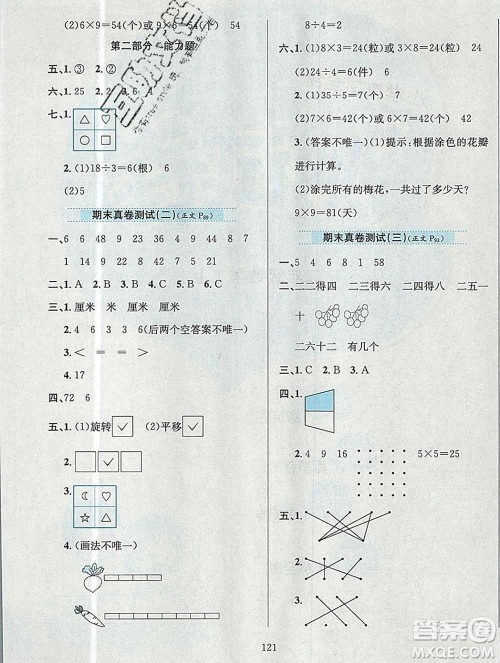 (2)6×9=54(个)或 9×6=54 54
第二部分 能力题
五、1. ③ 2. ②
六、1. 25 2. 2 3. 6 4. 6
七、1.
2. (1)18÷3=6(根) 6
(2)5
期末真卷测试(二)(正文 P89)
一、6 6 48 9 9 6 8 7 9
18 27 19 32 54 44 24 9 1
二、1. 厘米 米 厘米 厘米
2. 4 6 3 3 (后两个空答案不唯一)
3. < = = <
4. 17
四、72 6
五、1. (1)旋转 ✓ (2)平移 ✓
2. ✓
3.
4. (画法不唯一)
8÷4=2
六、(1)8×3=24(粒)或 3×8=24(粒)
(2)24÷4=6(件) 6
七、1. (1)35÷5=7(个) 7
(2)7×6=42(个)或 6×7=42(个) 42
3. (答案不唯一)(1)提示:根据涂色的花瓣
进行计算。
(2)涂完所有的梅花,一共过了多少天?
9×9=81(天)
期末真卷测试(三)(正文 P93)
一、5 4 6 8 1 58
二、二二得四 二三得六 二四得八 二五一
十
二六十二 有几个
三、1. C 2. B 3. A
四、1.
2. 4 9 16 5×5=25
五、1.
2.
121
答案圈
MXQE.COM